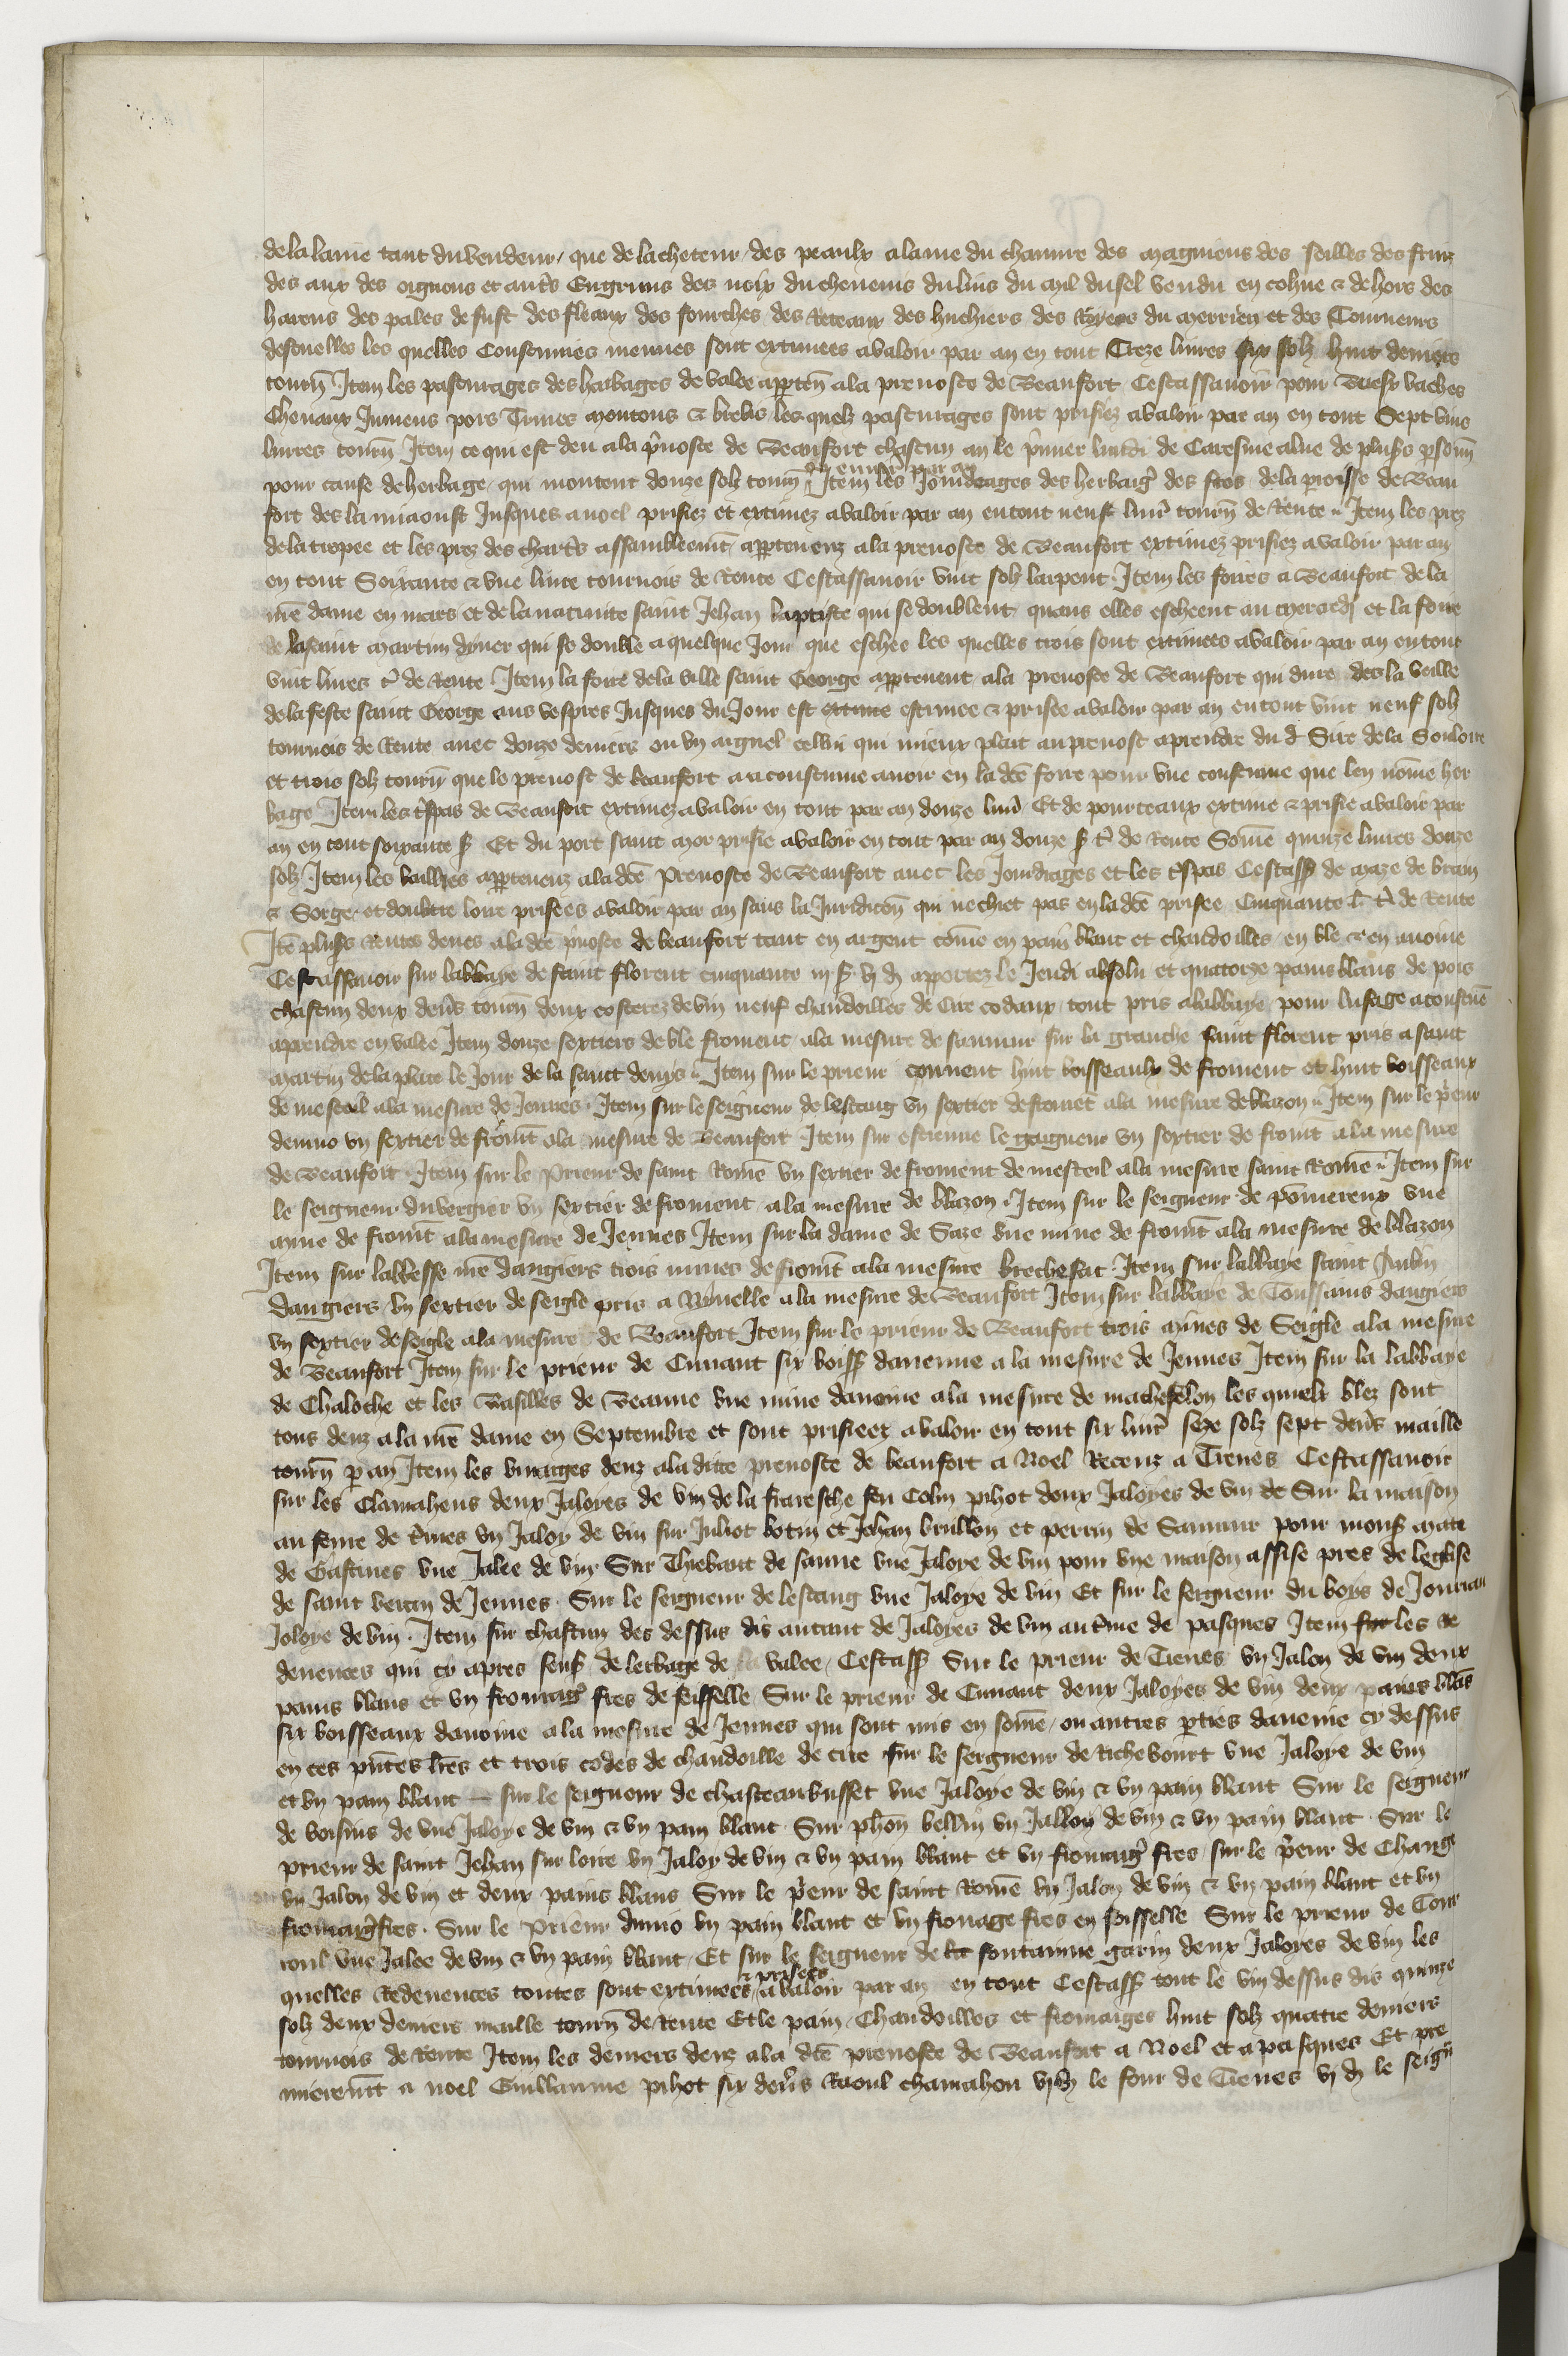 de la laine tant du vendeur / que de lacheteur / des peaulx a laine du chanure des maigniens des seilles des fruiz
des aux des oignons et autrs Engruns des noix du chenenis du lins du mil du sel vendu en cohue & dehors des
harens des pales de fust des fleaux des fourches des Reteaux des huchiers des Royers du merrien et des Tourneurs
descuelles les quelles Coustumes menues sont extimees a valoir par an en tout Treze liures six solz huit deniers
tourn Item les pasturages des harbages de valee apparten a la preuoste de Beaufort Cestassauoir pour Buefz vaches
Cheuaux Jumens pors Truies moutons & brebis les quelz pasturages sont prisiez a valoir par an en tout Sept vins
liures tourn Item ce qui est deu a la pnoste de Beaufort chascun an le pmier lundi de Caresme a lue de plus psonn
pour cause de herbage / qui montent douze solz tourn Item les Jourdeages des herbaig des fros de la parroisse de Beau
fort des la miaoust Jusques a noel prisiez et extimez a valoir par an en tout neuf liur tourn de Rente Item les prez
de la tropee et les prez des charts assambleemt appartenenz a la preuoste de Beaufort extimez prisiez a valoir par an
en tout Soixante & vne liure tournois de Rente Cestassauoir vint solz larpent Item les foires a Beaufort de la
nre dame en mars et de la natiuite saint Jehan baptiste qui se doublent quans elles escheent au mercredi et la foire
de la saint martin dyuer qui se double a quelque Jour que eschee les quelles trois sont extimees a valoir par an en tout
vint liures t de Rente Item la foire de la ville saint George appartenent a la preuoste de Beaufort qui dure des la veille
de la feste saint George aus vespres Jusques du Jour est extime estimee & prisee a valoir par an en tout vint neuf solz
tournois de Rente auec douze deniers ou vn aignel celui qui mieux plait au preuost a prendre du d Sire de la Souloire
et trois solz tourn que le preuost de beaufort a acoustume auoir en la dce foire pour vne coustume que len nome her
bage Item les tspas de Beaufort extimez a valoir en tout par an douze liur Et de pourceaux extime & prisie a valoir par
an en tout soixante s Et du port saint mor prisie a valoir en tout par an douze s t de Rente Some quinze liures douze
solz Item les baillies appartenenz a la dce Preuoste de Beaufort auec les Jourdrages et les tspas Cestass de maze de brain
& Sorge et doubtre loire prisees a valoir par an sans la Juridicon qui ne chiet pas en la dce prisee Cinquante l t de Rente
Ite pluss Rentes deues a la dce pnoste de beaufort tant en argent come en pain blanc et chandoilles / en ble & en auoine
Cestassauoir sur labbaye de saint florent cinquante iii s vj d apportez le Jeudi absolu et quatorze pains blans de pois
chascun deux deniers tourn deux costerez de vin neuf chandoilles de Cire codaux / tout pris a labbaye / pour lusage acoustue
a prendre en valee Item douze sextiers de ble froment a la mesure de saumur sur la granche saint florent pris a saint
martin de la place le Jour de la saint denys Item sur le prieur conuent huit boisseaulx de froment et huit boisseaux
de mesteil a la mesure de Jennes Item sur le seigneur de lestang vn sextier de fromet a la mesure de blazon Item sur le prieur
denuio vn sextier de fromt a la mesure de Beaufort Item sur estienne le gaigneur vn sextier de fromt a la mesure
de Beaufort Item sur le Prieur de saint Rome vn sextier de froment de mesteil a la mesure saint Rome Item sur
le seigneur du vergier vn sextier de froment a la mesure de blazon Item sur le seigneur de pomereux vne
mine de fromt a la mesure de Jennes Item sur la dame de Saze vne mine de fromt a la mesure de blazon
Item sur labbesse nre dangiers trois mines de fromt a la mesure brechesac Item sur labbaye saint Aubin
dangiers vn sextier de seigle pris a Brinelle a la mesure de Beaufort Item sur labbaye de Toussains dangiers
vn sextier de seigle a la mesure de Beaufort Item sur le prieur de Beaufort trois mines de Seigle a la mesure
de Beaufort Item sur le prieur de Cunant six boiss dauenne a la mesure de Jennes Item sur la labbaye
de Chaloche et les Vasilles de Beaune vne mine dauoine a la mesure de mathefelon les quielx blez sont
tous deuz a la nre dame en Septembre et sont prisieez a valoir en tout six liur seze solz sept denrs maille
tourn p an Item les vinages deuz a la ditte preuoste de beaufort a Noel Receuz a Treues Cestassauoir
sur les Clamahens deux Jaloyes de vin de la fraresche feu Colin pihot deux Jaloyes de vin de Sur la maison
au feure de tiues vn Jaloy de vin sur Juliot botin et Jehan brullon et perrin de Saumur pour mons mace
de Gastines vne Jalee de vin Sur Thiebaut de saune vne Jaloye de vin pour vne maison assise pres de leglise
de saint vetrin de Jennes Sur le seigneur de lestang vne Jaloye de vin Et sur le seigneur du boys de Jourian
Joloye de vin Item sur chascun des dessus dis autant de Jaloyes de vin au tme de pasques Item sur les re
deuences qui cy apres sens de lerbage de valee / Cestass Sur le prieur de Treues vn Jaloy de vin deux
pains blans et vn fromag fres de feisselle Sur le prieur de Cunant deux Jaloyes de vin deux pains blas
six boisseaux dauoine a la mesure de Jennes qui sont mis en some / ou autres pties daueine cy dessus
en ces pntes lres et trois codes de chandoille de cire sur le seigneur de Richebourt vne Jaloye de vin
et vn pain blanc sur le seigneur de chasteaubusset vne Jaloye de vin & vn pain blanc Sur le seigneur
de voisins de vne Jaloye de vin & vn pain blanc Sur phon bellin vn Jalloy de vin & vn pain blanc Sur le
prieur de saint Jehan sur loire vn Jaloy de vin & vn pain blanc et vn fromag fres / sur le pieur de Change
vn Jaloy de vin et deux pains blans Sur le pieur de saint Rome vn Jaloy de vin & vn pain blanc et vn
fromaig fres Sur le Prieur dunio vn pain blanc et vn fromage fres en foisselle Sur le prieur de Cour
coul vne Jalee de vin & vn pain blanc Et sur le seigneur de la fontainne garin deux Jaloyes de vin les
quelles Redeuences toutes sont extimees & prisees a valoir par an en tout Cestass tout le vin dessus dis quinze
solz deux deniers maille tourn de Rente Et le pain / Chandoilles et fromaiges huit solz quatre deniers
tournois de Rente Item les deniers deuz a la dce preuoste de Beaufort a Noel et a pasques Et pre
mieremt a noel Guillaume pihot six denrs Raoul chamahon vj d le four de Treues vj d le seign